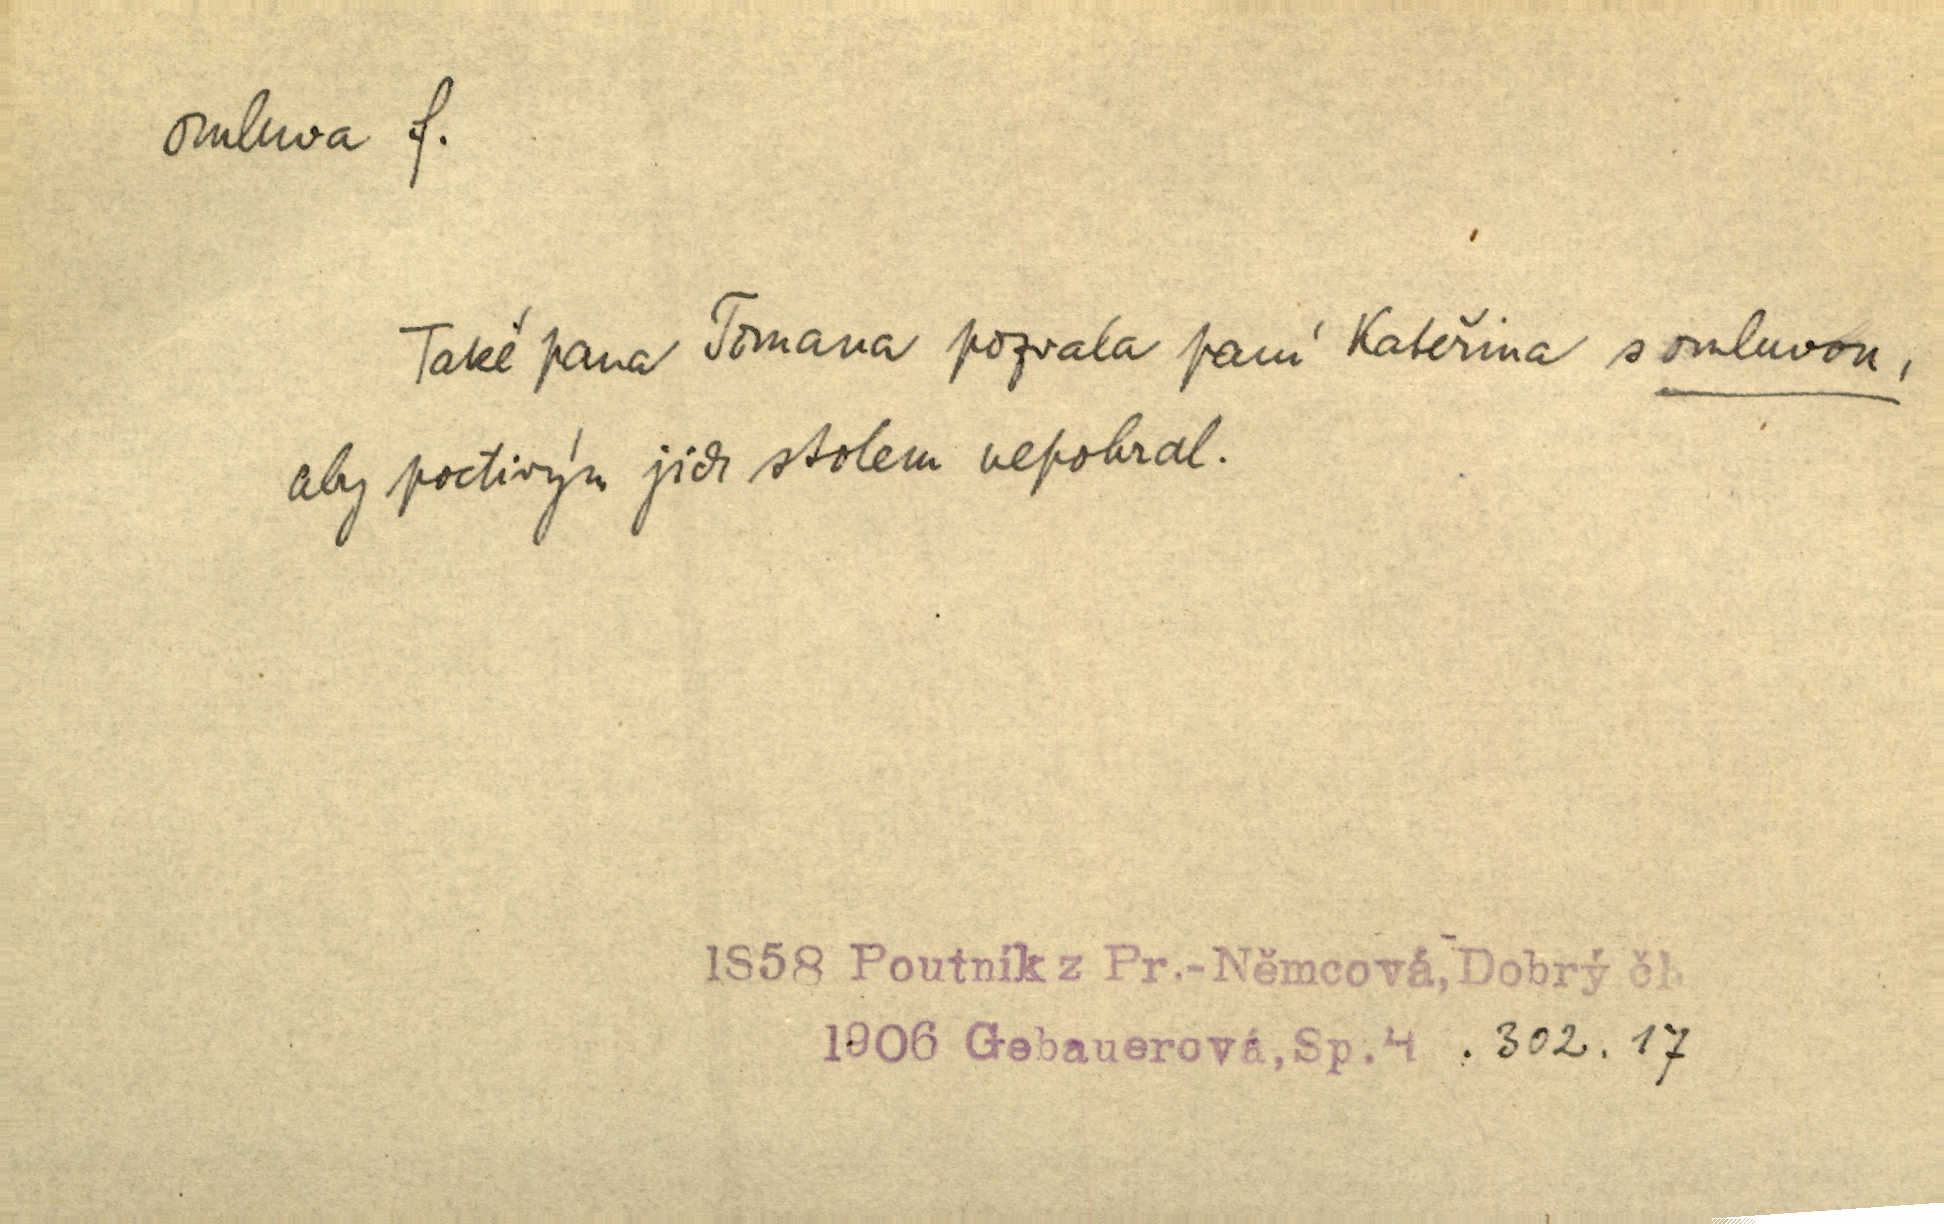 omluva f.
Také pana Tomana pozvala paní Kateřina s omluvou,
aby poctivým jich stolem nepohrdal.
1858 Poutník z Pr.-Němcová, Dobrý čl
1906 Gebauerová, Sp. 4 . 302. 17